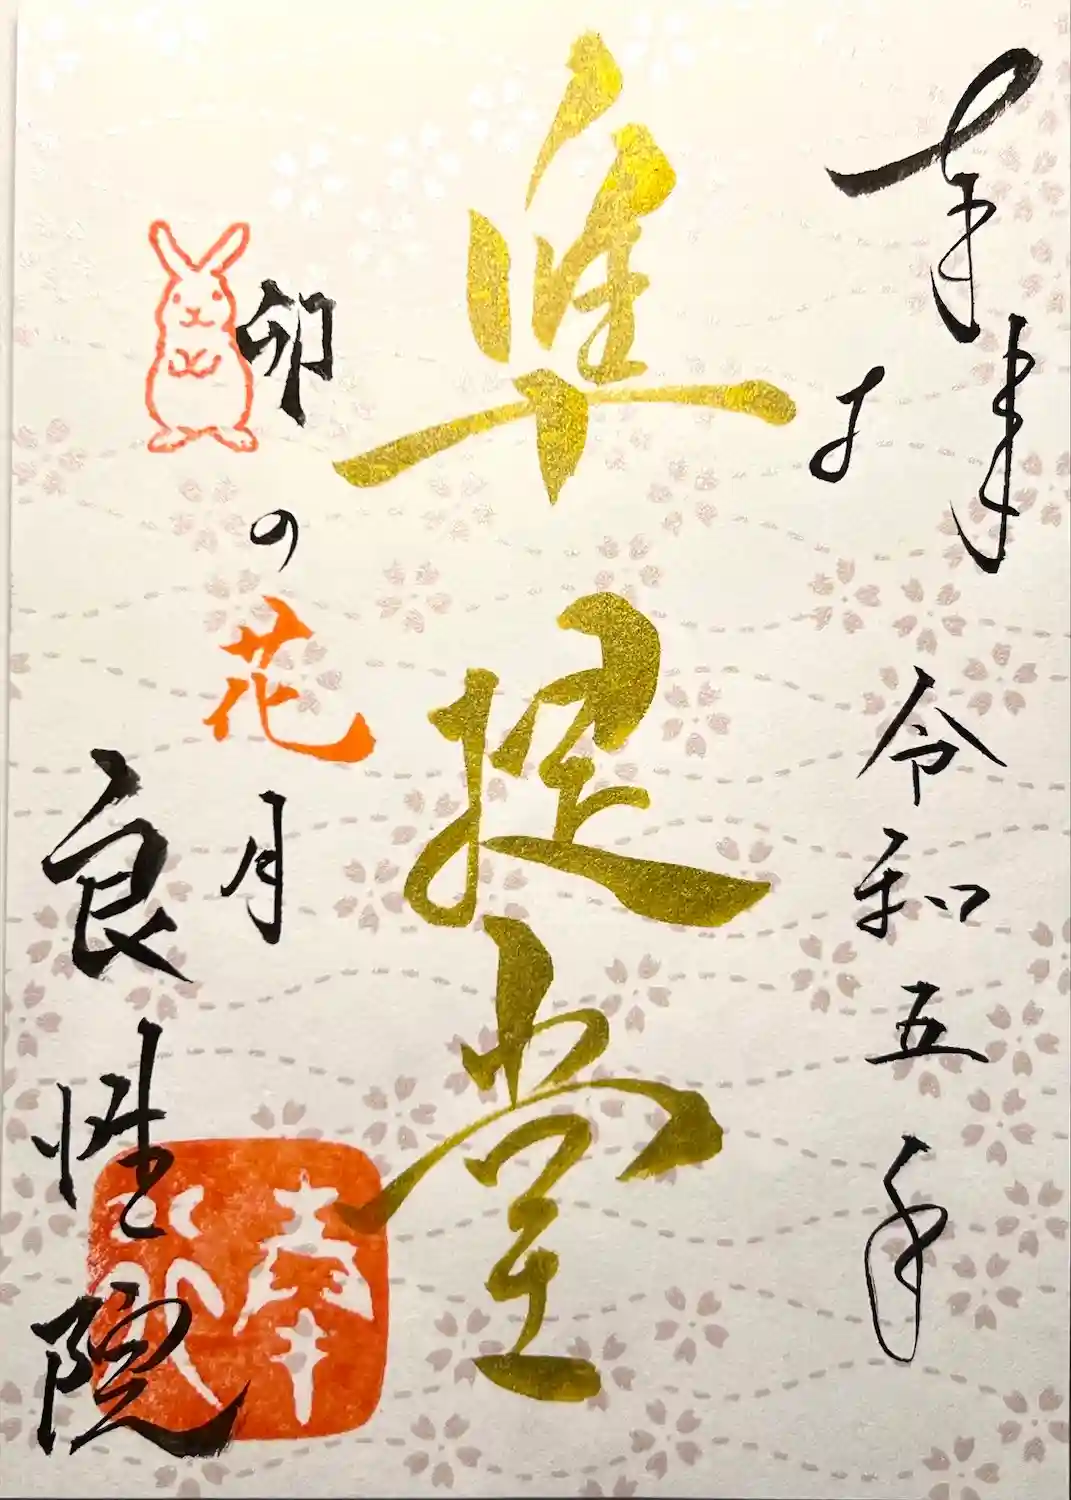 奉拝
令和五年
準提堂
卯の花月
良性院
奉